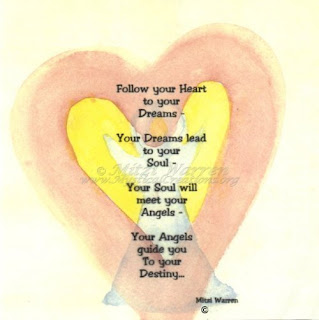 Follow your Heart
to your
Dreams -
Your Dreams lead
to your
Soul -
© Mitzi Warren
Your Soul will
meet your
Angels -
Your Angels
guide you
To your
Destiny...
Mitzi Warren
©